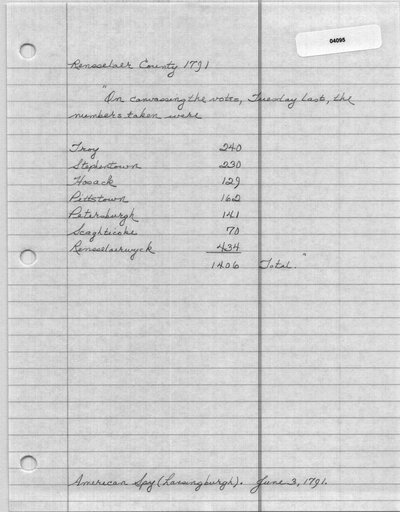 04095
Rensselaer County 1791
"On canvassing the votes, Tuesday last, the
numbers taken were
Troy 240
Stephentown 230
Hosack 129
Pittstown 162
Petersburgh 141
Scaghticoke 70
Rensselaerwyck 434
1406 Total."
American Spy (Lansingburgh). June 3, 1791.